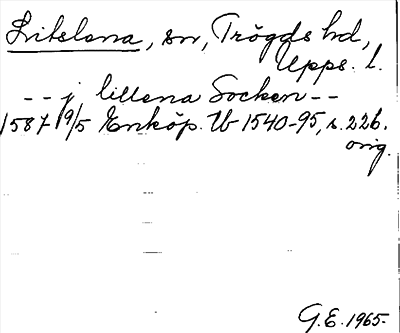 Litslena, sn, Trögds hd,
Upps. l.
-- j lillena Socken --
1587 19/5 Enköp. Ub 1540-95, s. 226.
orig.
G.E. 1965.